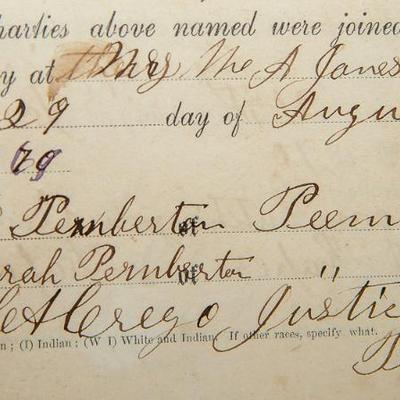 harties above named were joined
y at Mrs Mc A Janes
29 day of Augu
79
Pemberton of Peem
rah Pemberton of "
Justic
n ; (I) Indian ; (W I) White and Indian. If other races, specify what.